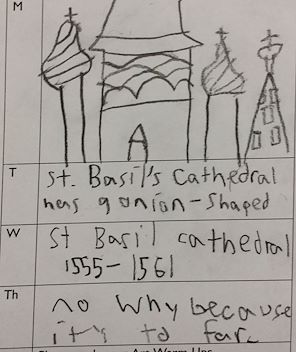 M
T
St. Basil's Cathedral
has 9 onion-shaped
W
St Basil cathedral
1555-1561
Th
no why because
it's to far.